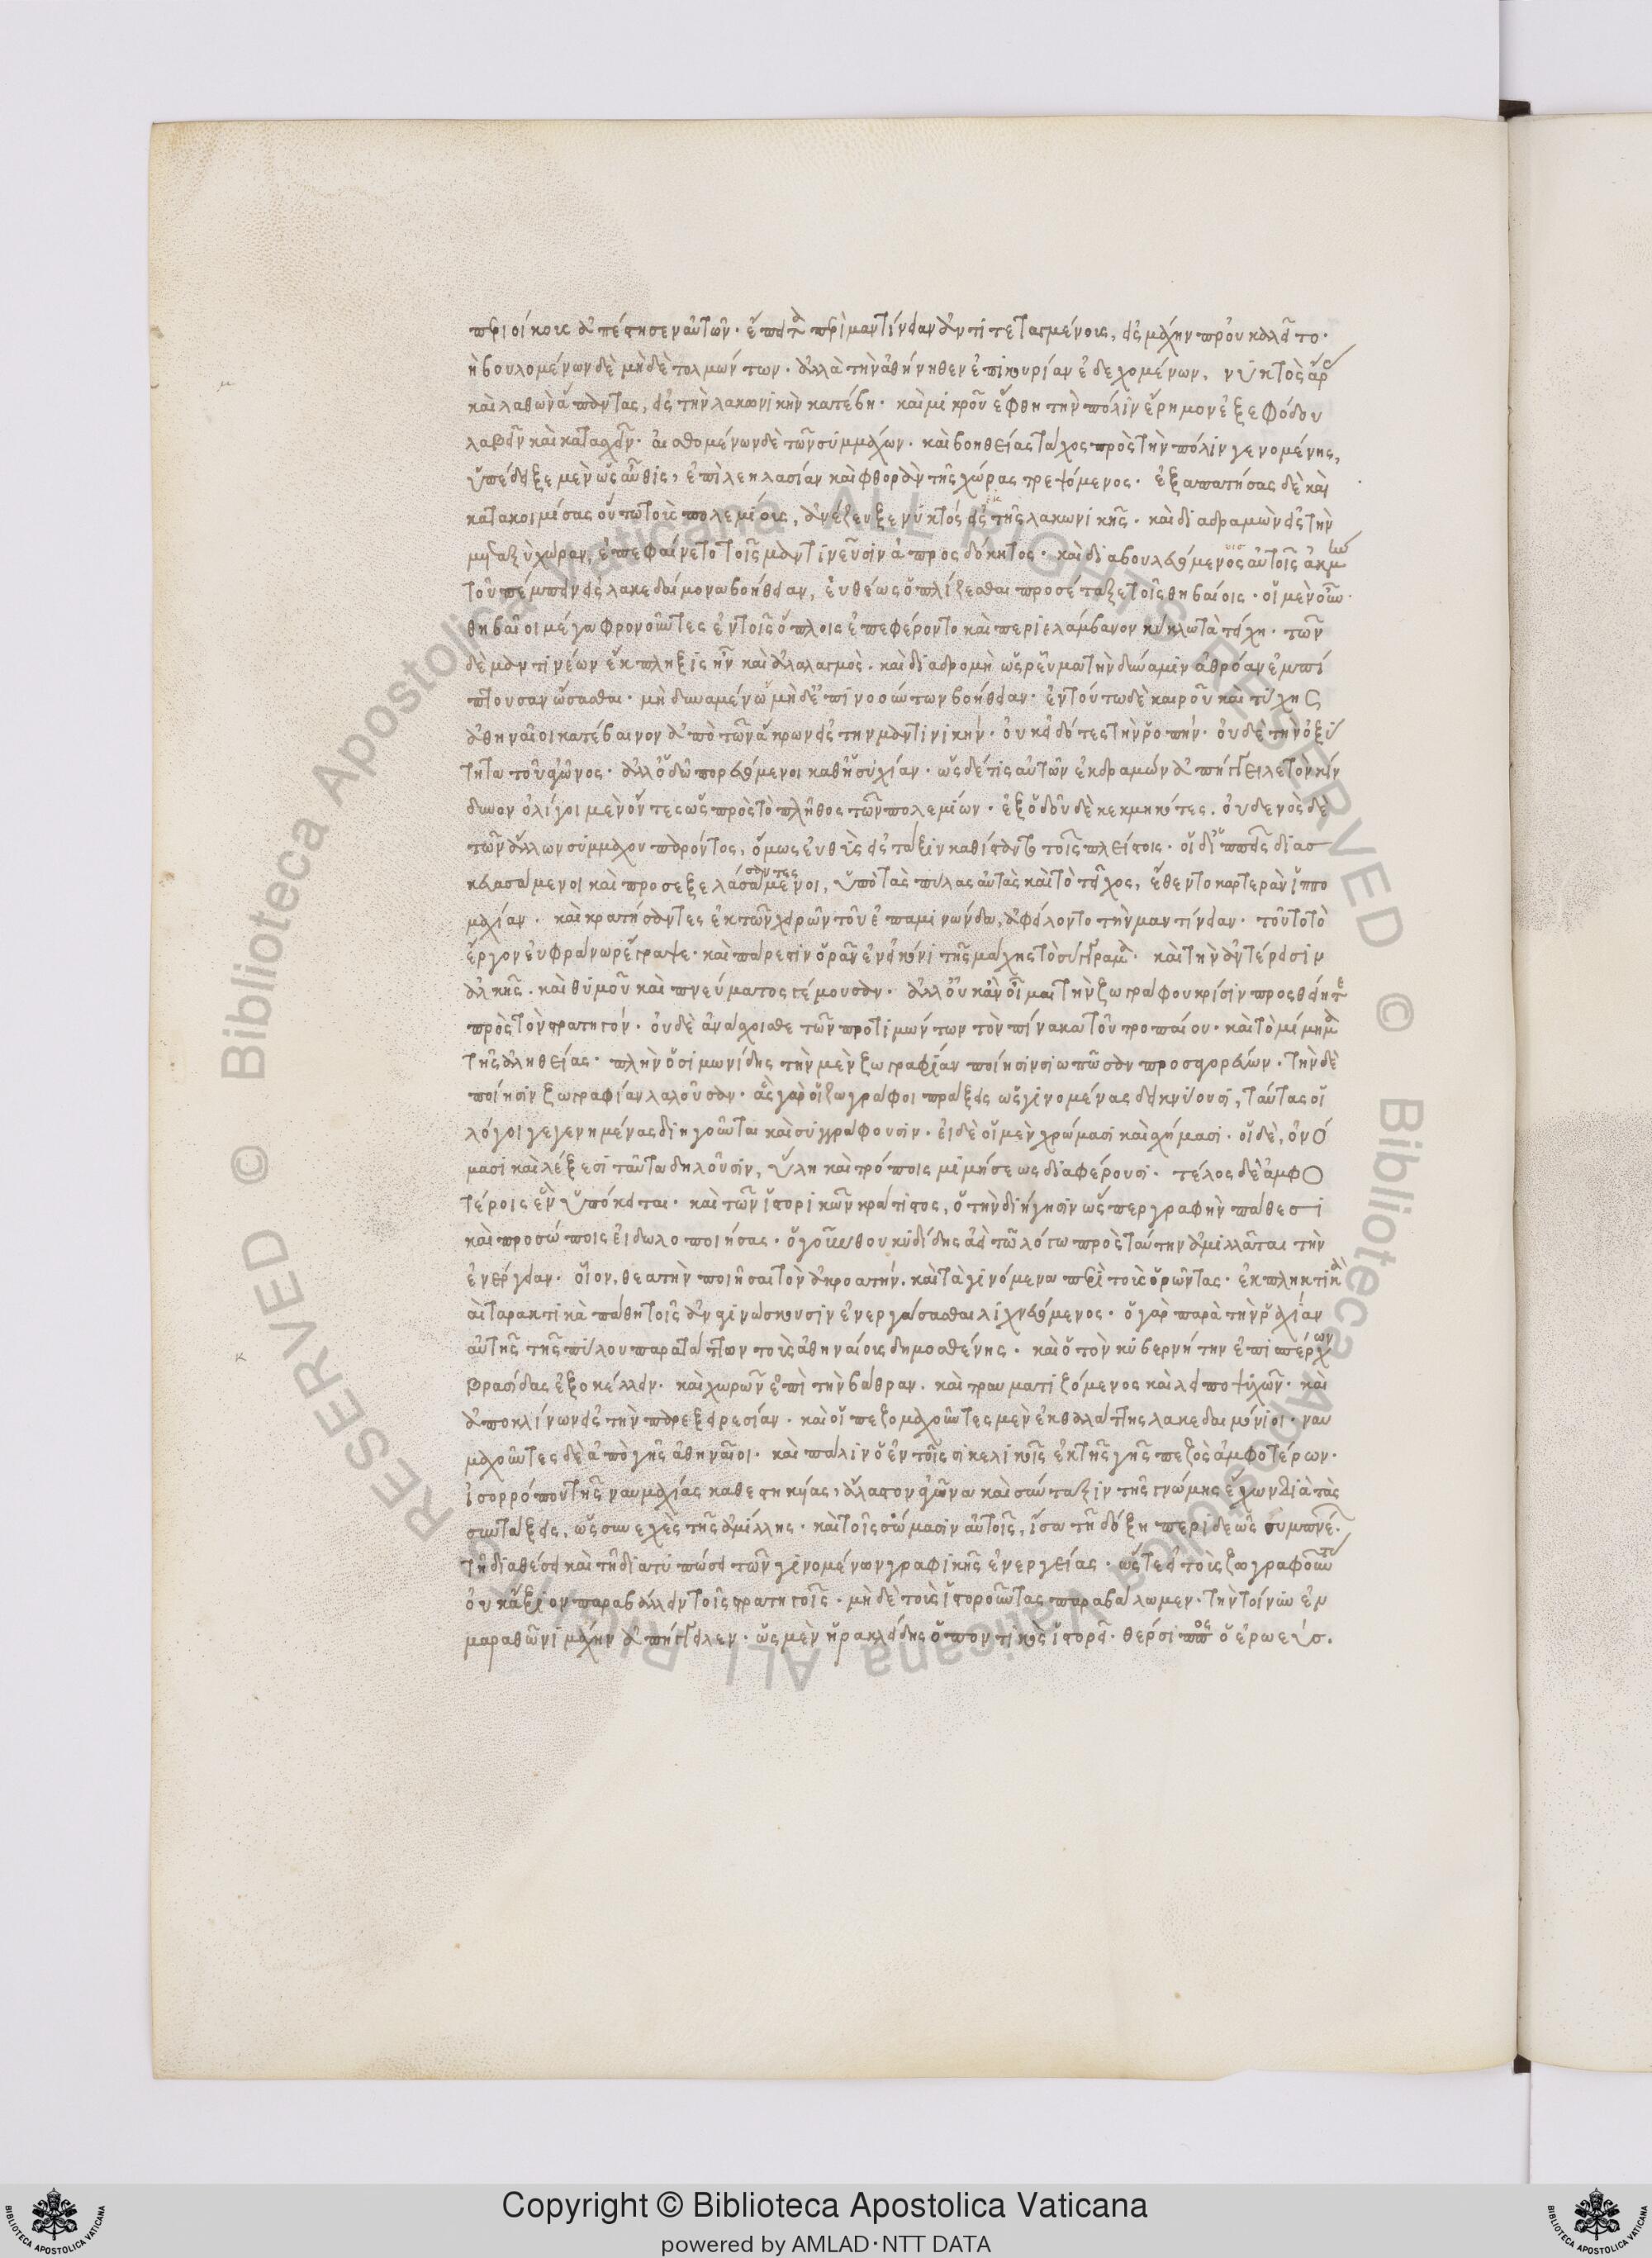 περιοίκους ἀπέστησεν αὐτῶν· ἔπειτα περὶ μαντίνειαν ἀντιτεταγμένους, εἰς μάχην προὐκαλεῖτο·
μὴ βουλομένων δὲ μηδὲ τολμώντων· ἀλλὰ τὴν ἀθήνηθεν ἐπικουρίαν ἐκδεχομένων, νυκτὸς ἄρας
καὶ λαθὼν ἅπαντας, εἰς τὴν λακωνικὴν κατέβη· καὶ μικροῦ ἔφθη τὴν πόλιν ἔρημον ἐξ ἐφόδου
λαβεῖν καὶ κατασχεῖν· αἰσθομένων δὲ τῶν συμμάχων· καὶ βοηθείας τάχος πρὸς τὴν πόλιν γενομένης,
ὑπέδειξε μὲν ὡς αὖθις, ἐπὶ λεηλασίαν καὶ φθορὰν τῆς χώρας τρεψόμενος· ἐξαπατήσας δὲ καὶ
κατακοιμίσας οὕτω τοὺς πολεμίους, ἀνέζευξε νυκτὸς ἐκ τῆς λακωνικῆς· καὶ διαδραμὼν εἰς τὴν
μεταξὺ χώραν, ἐπεφαίνετο τοῖς μαντινεῦσιν ἀπροσδόκητος· καὶ διαβουλευομένοις αὐτοῖς ἀκμὴν
τοῦ πέμπειν εἰς λακεδαίμονα βοήθειαν, εὐθέως ὁπλίζεσθαι προσέταξε τοῖς θηβαίοις· οἱ μὲν οὖν
θηβαῖοι μέγα φρονοῦντες ἐν τοῖς ὅπλοις ἐπεφέροντο καὶ περιελάμβανον κύκλω τὰ τείχη· τῶν
δὲ μαντινέων ἔκπληξις ἦν καὶ ἀλαλαγμὸς· καὶ διαδρομὴ ὡς ῥεῦμα τὴν δύναμιν ἀθρόαν ἐμπί
πτουσαν ὤσασθαι· μὴ δυναμένων μηδ' ἐπινοούντων βοήθειαν· ἐν τούτω δὲ καιροῦ καὶ τύχης
ἀθηναῖοι κατέβαινον ἀπὸ τῶν ἄκρων εἰς τὴν μαντινικήν· οὐκ εἰδότες τὴν ῥοπήν· οὐδὲ τὴν ὀξύ
τητα τοῦ ἀγῶνος· ἀλλ' ὁδῶ πορευόμενοι καθ' ἡσυχίαν· ὡς δέ τις αὐτῶν ἐκδραμὼν ἀπήγγειλε τὸν κίν
δυνον ὀλίγοι μὲν ὄντες ὡς πρὸς τὸ πλῆθος τῶν πολεμίων· ἐξ ὁδοῦ δὲ κεκμηκότες· οὐδενὸς δὲ
τῶν ἄλλων συμμάχων παρόντος, ὅμως εὐθὺς εἰς τάξιν καθίσταντο τοῖς πλείστοις· οἱ δ' ἱππεῖς διασ
κευασάμενοι καὶ προσεξελάσαμενοι, σαντες ὑπὸ τὰς πύλας αὐτὰς καὶ τὸ τεῖχος, ἔθεντο καρτερὰν ἱππο
μαχίαν· καὶ κρατήσαντες ἐκ τῶν χειρῶν τοῦ ἐπαμινώνδα, ἀφείλοντο τὴν μαντίνειαν· τοῦτο τὸ
ἔργον εὐφράνωρ ἔγραψε· καὶ πάρεστιν ὁρᾶν ἐν εἰκόνι τῆς μάχης τὸ σύγγραμμα· καὶ τὴν ἀντέρεισιν
ἀλκῆς· καὶ θυμοῦ καὶ πνεύματος γέμουσαν· ἀλλ' οὐκ ἂν οἶμαι τῇ ζωγράφου κρίσιν προσθείητε
πρὸς τὸν στρατηγόν· οὐδὲ ἀνάσχοισθε τῶν προτιμώντων τὸν πίνακα τοῦ τροπαίου· καὶ τὸ μίμημα
τῆς ἀληθείας· πλὴν ὁ σιμωνίδης τὴν μὲν ζωγραφίαν ποίησιν σιωπῶσαν προσαγορεύων· τὴν δὲ
ποίησιν ζωγραφίαν λαλοῦσαν· ἃς γὰρ οἱ ζωγράφοι πράξεις ὡς γινομένας δεικνύουσι, ταύτας οἱ
λόγοι γεγενημένας διηγοῦνται καὶ συγγράφουσιν· εἰ δὲ οἱ μὲν χρώμασι καὶ σχήμασι· οἱ δὲ, ὀνό
μασι καὶ λέξεσι ταῦτα δηλοῦσιν, ὕλη καὶ τρόποις μιμήσεως διαφέρουσι· τέλος δὲ ἀμφο
τέροις ἓν ὑπόκειται· καὶ τῶν ἱστορικῶν κράτιστος, ὁ τὴν διήγησιν ὥσπερ γραφὴν πάθεσι
καὶ προσώποις εἰδωλοποιήσας· ὁ γοῦν θουκυδίδης ἀεὶ τῶ λόγω πρὸς ταύτην ἁμιλλᾶται τὴν
ἐνέργειαν· οἷον, θεατὴν ποιῆσαι τὸν ἀκροατήν· καὶ τὰ γινόμενα περὶ τοὺς ὁρῶντας· ἐκπληκτικὰ
καὶ ταρακτικὰ πάθη τοῖς ἀναγινώσκουσιν ἐνεργάσασθαι λιχνευόμενος· ὁ γὰρ παρὰ τὴν ῥαχίαν
αὐτῆς τῆς πύλου παρατάττων τοὺς ἀθηναίους δημοσθένης· καὶ ὁ τὸν κυβερνήτην ἐπισπέρχων
βρασίδας ἐξοκέλλειν· καὶ χωρῶν ἐπὶ τὴν βάθραν· καὶ τραυματιζόμενος καὶ λειποψυχῶν· καὶ
ἀποκλίνων εἰς τὴν παρεξειρεσίαν· καὶ οἱ πεζομαχοῦντες μὲν ἐκ θαλάττης λακεδαιμόνιοι· ναυ
μαχοῦντες δὲ ἀπὸ γῆς ἀθηναῖοι· καὶ πάλιν ὁ ἐν τοῖς σικελικοῖς ἐκ τῆς γῆς πεζὸς ἀμφοτέρων·
ἰσορρόπου τῆς ναυμαχίας καθεστηκυίας, ἄλαστον ἀγῶνα καὶ σύνταξιν τῆς γνώμης ἔχων διὰ τὰς
συντάξεις, ὡς συνεχὲς τῆς ἁμίλλης· καὶ τοῖς σώμασιν αὐτοῖς, ἴσα τῇ δόξη περιδεῶς
τῇ διαθέσει καὶ τῇ διατυπώσει τῶν γινομένων γραφικῆς ἐνεργείας· ὥστ' εἰ τοὺς ζωγραφοῦντας
οὐκ ἄξιον παραβάλλειν τοῖς στρατηγοῖς· μηδὲ τοὺς ἱστοροῦντας παραβάλωμεν· τὴν τοίνυν ἐν
μαραθῶνι μάχην ἀπήγγειλεν· ὡς μὲν ἡρακλείδης ὁ ποντικὸς ἱστορεῖ· θέρσιππος ὁ ἐρωεύς·